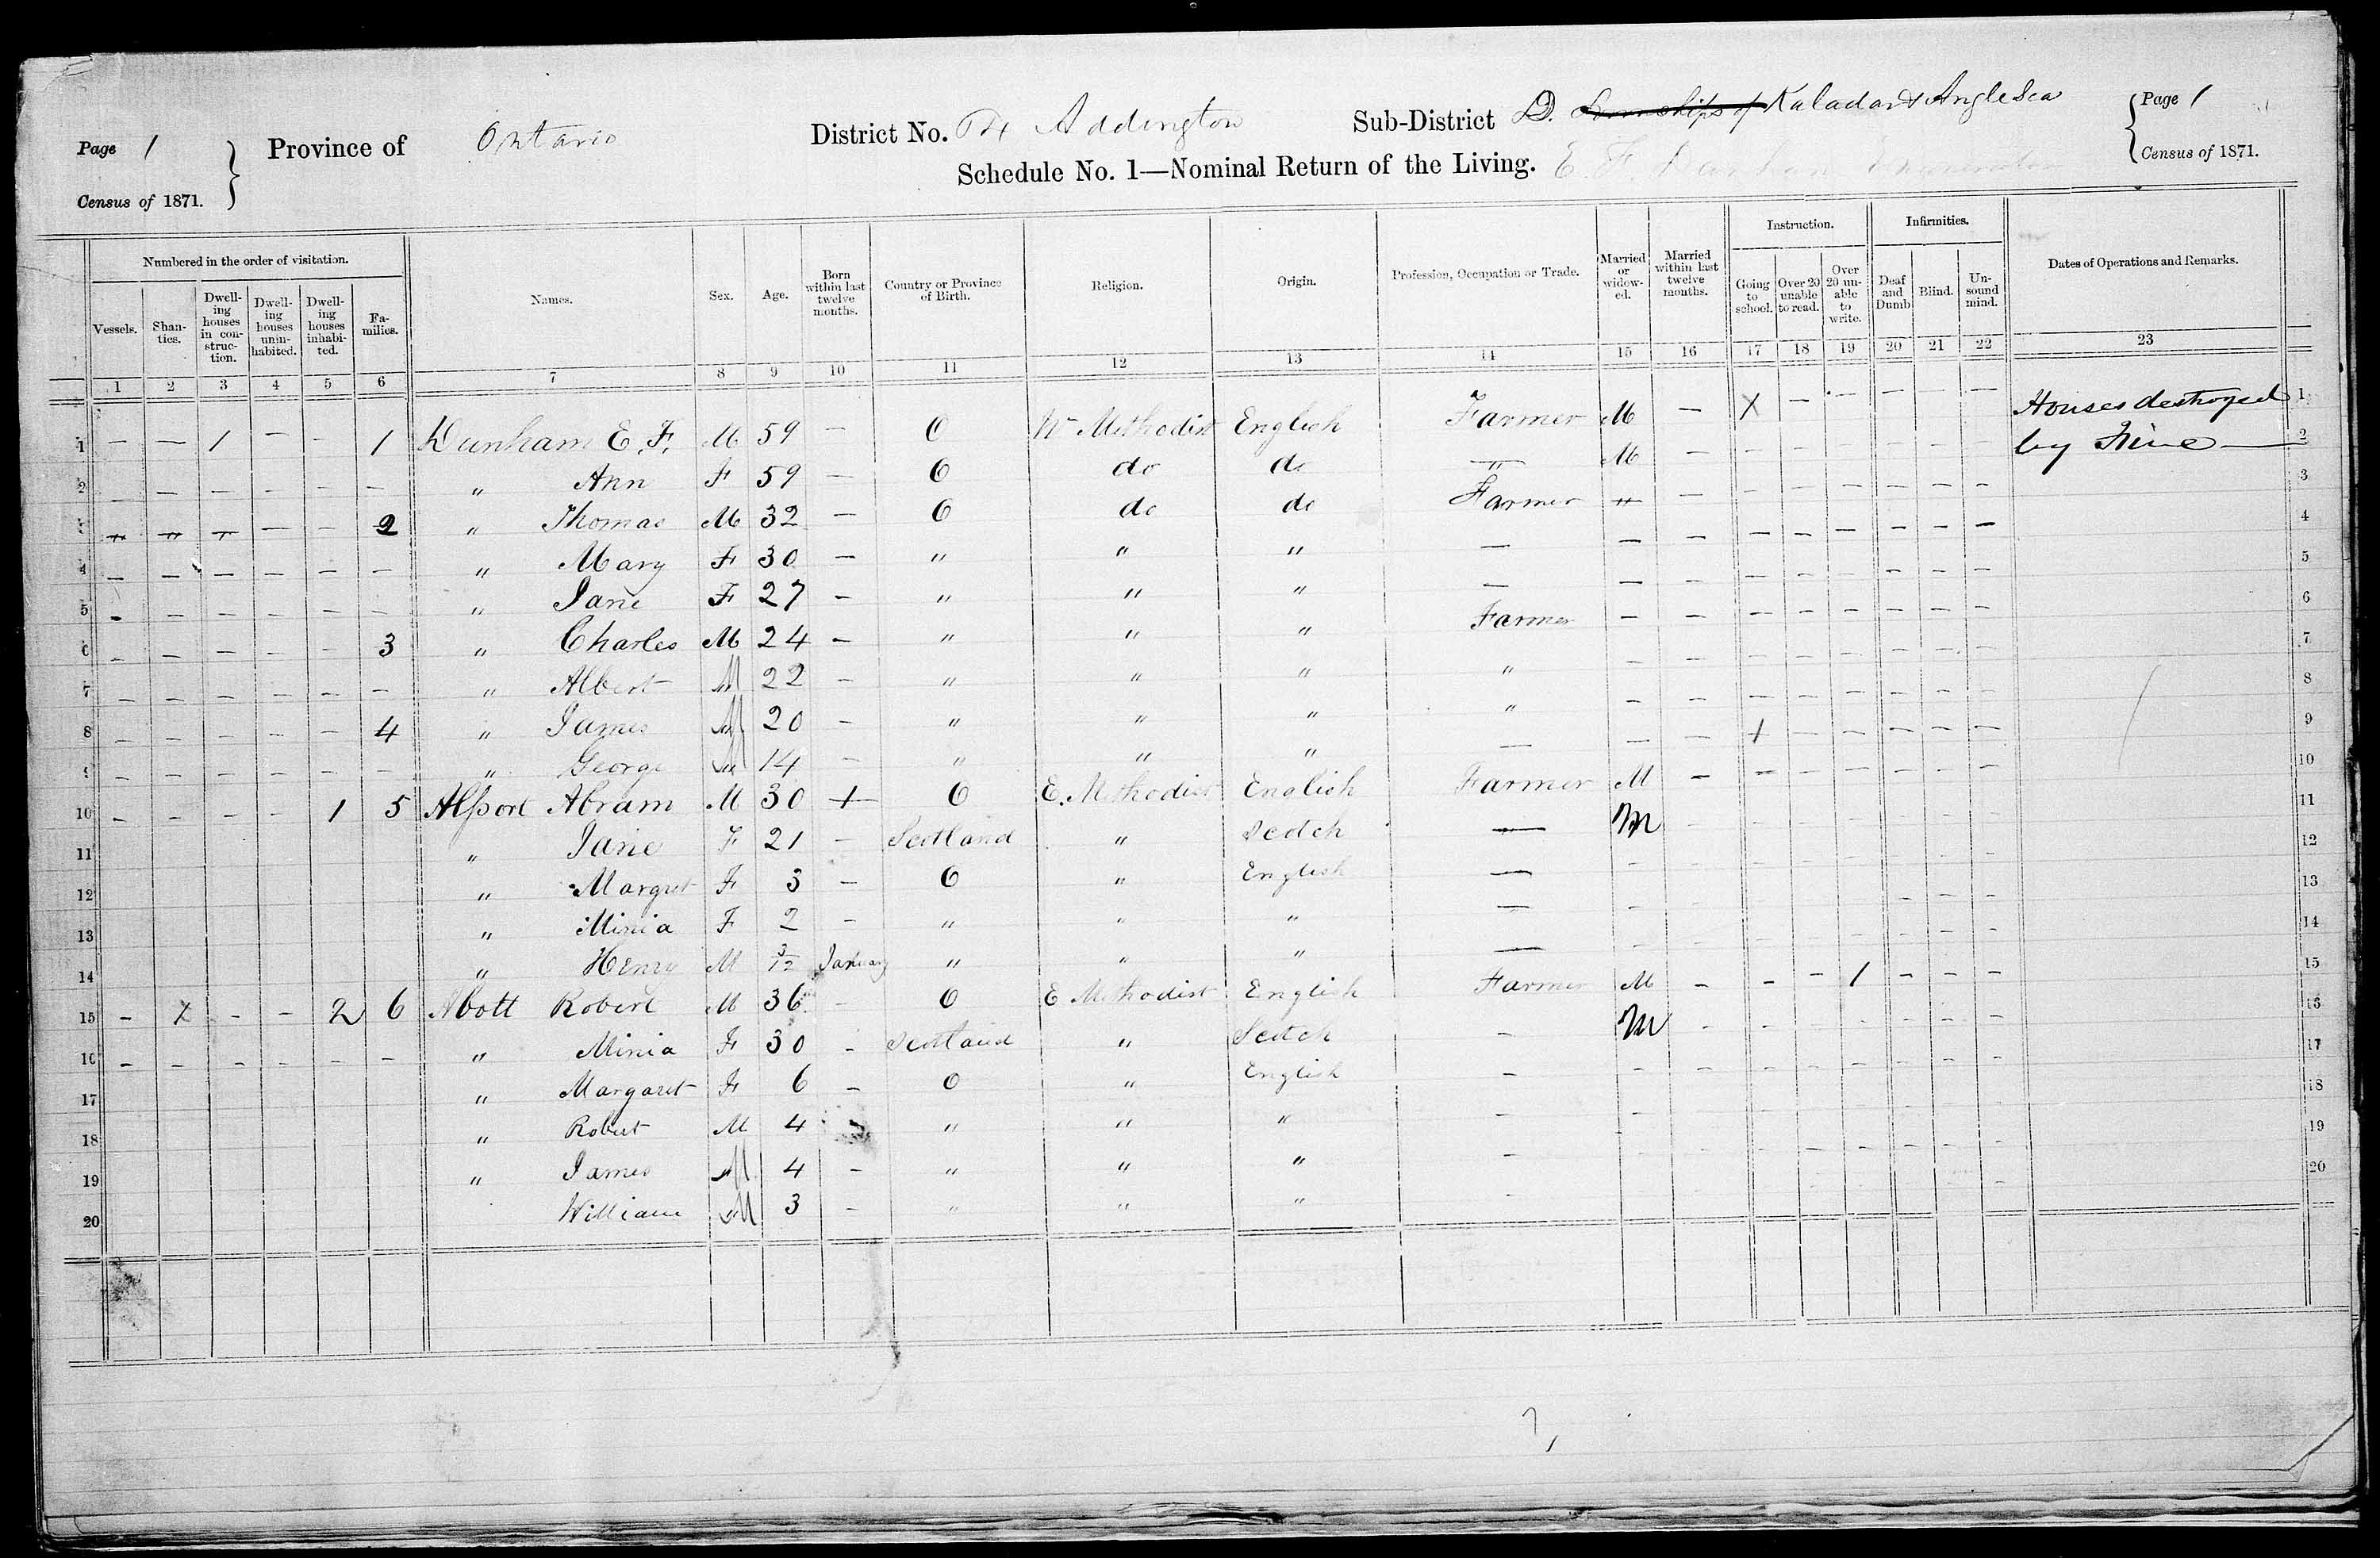 Page 1 } Province of Ontario District No. Addington Sub-District D. Kaladar & Anglesea { Page 1
Census of 1871. Schedule No. 1—Nominal Return of the Living. E. F. Dunham Enumerator Census of 1871.
Numbered in the order of visitation. Names. Sex. Age. Born within last twelve months. Country or Province of Birth. Religion. Origin. Profession, Occupation or Trade. Married or widowed. Married within last twelve months. Instruction. Infirmities. Dates of Operations and Remarks.
Vessels. Shanties. Dwelling houses in construction. Dwelling houses uninhabited. Dwelling houses inhabited. Families. Going to school. Over 20 unable to read. Over 20 unable to write. Deaf and Dumb Blind. Unsound mind.
1 2 3 4 5 6 7 8 9 10 11 12 13 14 15 16 17 18 19 20 21 22 23
1 — — 1 — — 1 Dunham E. F. M 59 — O W Methodist English Farmer M — X — — — — — Houses destroyed 1
2 — — — — — — " Ann F 59 — O do do " M — — — — — — — by Fire — 2
3 " " " — — 2 " Thomas M 32 — O do do Farmer " — — — — — — — 3
4 — — — — — — " Mary F 30 — " " " — — — — — — — — — 4
5 — — — — — — " Jane F 27 — " " " — — — — — — — — — 5
6 — — — — — 3 " Charles M 24 — " " " Farmer — — — — — — — — 6
7 — — — — — — " Albert M 22 — " " " " — — — — — — — — 7
8 — — — — — 4 " James M 20 — " " " " — — — — — — — — 8
9 — — — — — — " George M 14 — " " " — — — + — — — — — 9
10 — — — — 1 5 Alport Abram M 30 + O E. Methodist English Farmer M — — — — — — — 10
11 " Jane F 21 — Scotland " Scotch — M — — — — — — — 11
12 " Margret F 3 — O " English — — — — — — — — — 12
13 " Minia F 2 — " " " — — — — — — — — — 13
14 " Henry M 3/12 January " " " — — — — — — — — — 14
15 — X — — 2 6 Abott Robert M 36 — O E Methodist English Farmer M — — — 1 — — — 15
16 — — — — — — " Minia F 30 — Scotland " Scotch — M — — — — — — — 16
17 " Margaret F 6 — O " English — — — — — — — — — 17
18 " Robert M 4 — " " " — — — — — — — — — 18
19 " James M 4 — " " " — — — — — — — — — 19
20 William M 3 — " " " — — — — — — — — — 20